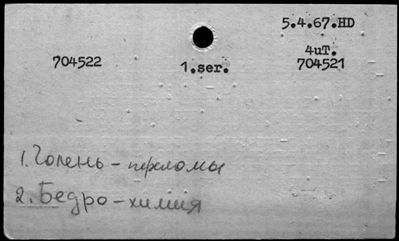 5.4.67.HD
704522 1.ser. 4uT.
704521
1. Голень - переломы
2. Бедро - химия